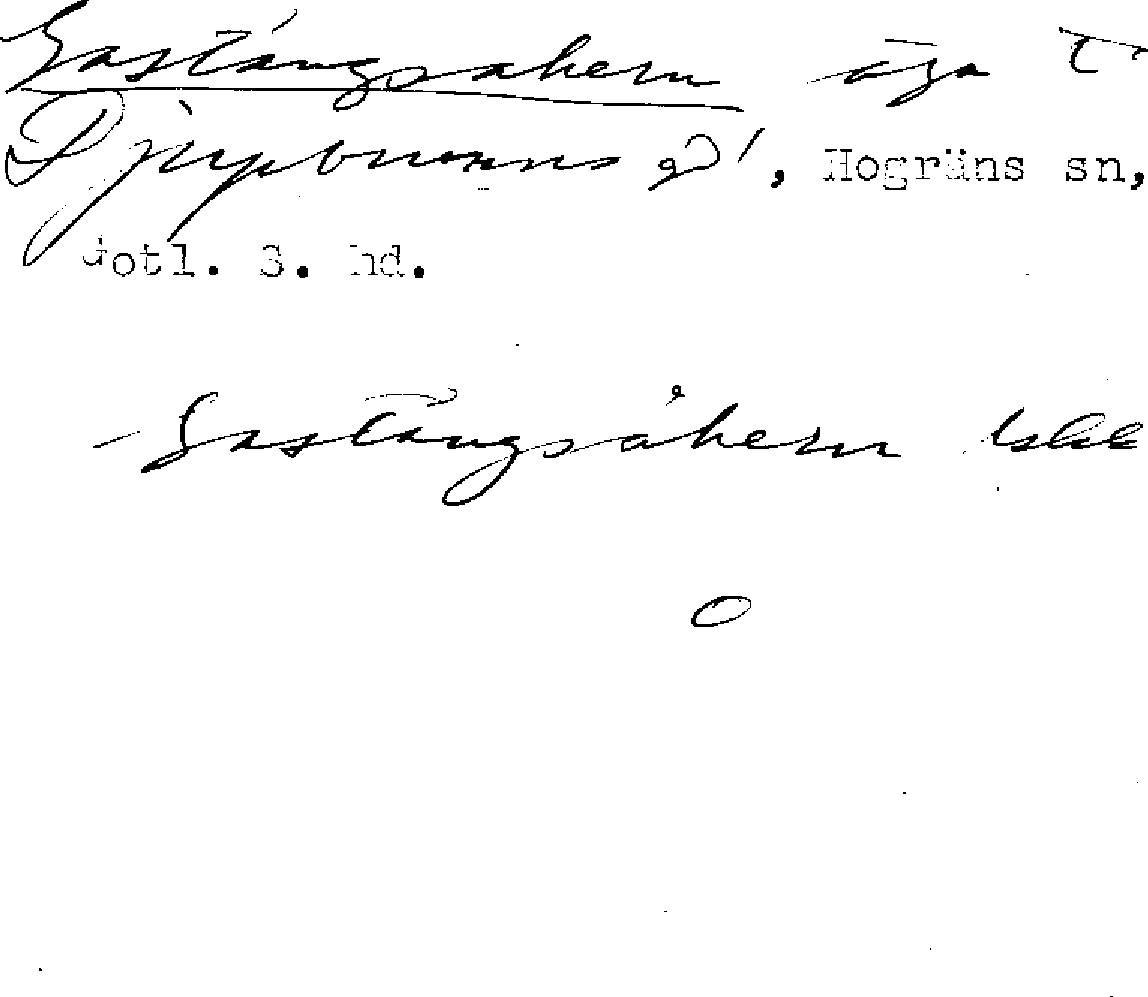 Gastängsåkern äga t
Djupbrunns gd, Hogräns sn,
Gotl. S. hd.
Gastängsåkern